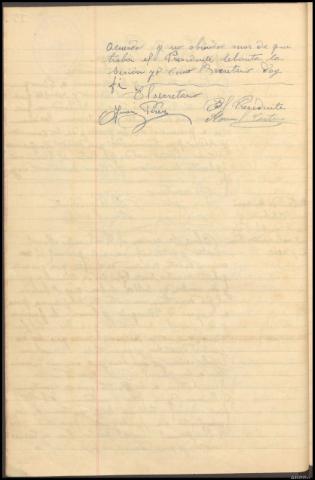 acuerdo y no abiendo mas de que
tratar el Presidente lebanta la
sesion yo como Secretario Doy
fé
El secretario
El Presidente
Juan Pérez